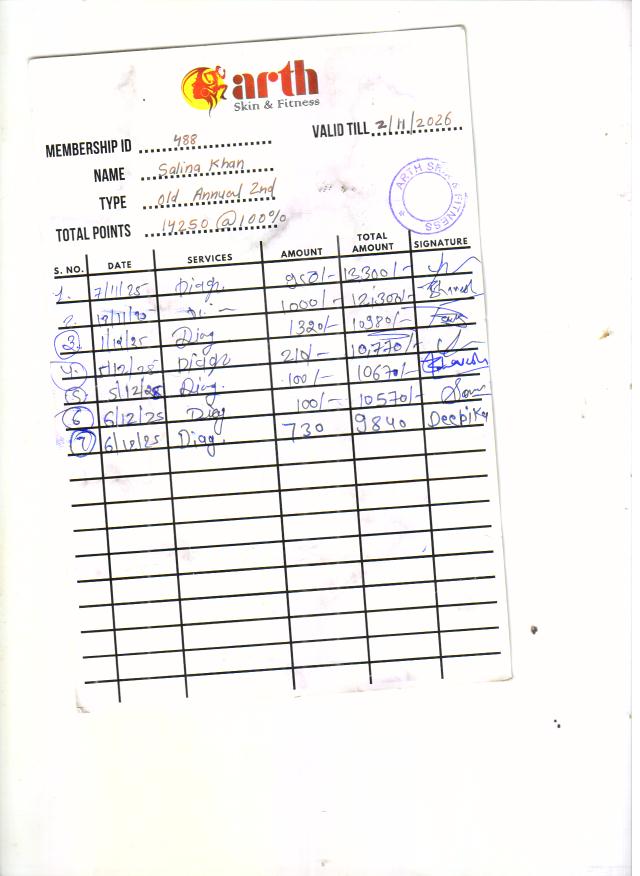 arth
Skin & Fitness
VALID TILL 2/11/2026
MEMBERSHIP ID 488
NAME Salina Khan
TYPE Old Annual 2nd
TOTAL POINTS 14250 @100%
ARTH SKIN & FITNESS
S. NO. DATE SERVICES AMOUNT TOTAL AMOUNT SIGNATURE
1. 7/11/25 950/- 13300/-
2. 1000/- 12,300/-
3. 1/12/25 Diag 1320/- 10980/-
4. 5/12/25 210/- 10,770/-
5. 5/12/25 Diag. 100/- 10670/-
6 6/12/25 Diag 100/- 10570/-
7 6/12/25 Diag. 730 9840 Deepika